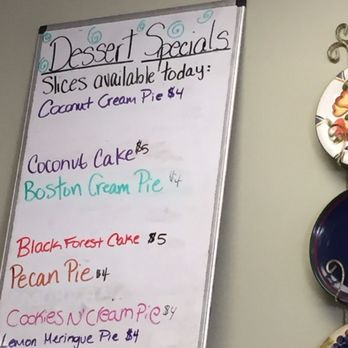 Dessert Specials
Slices available today:
Coconut Cream Pie $4
Coconut Cake $5
Boston Cream Pie $4
Black Forest Cake $5
Pecan Pie $4
Cookies N' Cream Pie $4
Lemon Meringue Pie $4